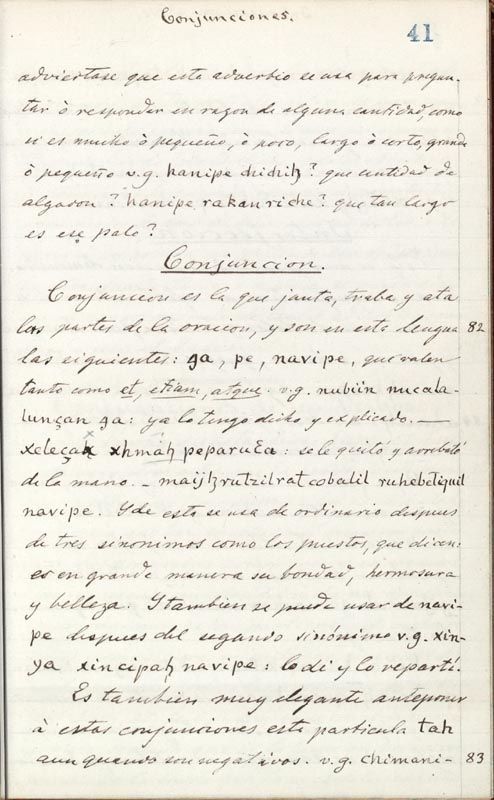 Conjunciones.
41
adviertase que esta adverbio se usa para pregun-
tar ò responder en razon de alguna cantidad, como
si es mucho ò pequeño, ò poco, largo ò corto, grande
ò pequeño v.g. hanipe chichiꜩ? que cantidad de
algodon? hanipe rakan riche? que tan largo
es ese palo?
Conjuncion.
Conjuncion es la que junta, traba y ata
las partes de la oracion, y son en esta lengua 82
las siguientes: ga, pe, navipe, que valen
tanto como et, etiam, atque. v.g. nubiin nucala-
lunçan ga: ya lo tengo dicho y explicado. —
xeleçaꜩ xhmaꜩ peparuꜫa: se le quitó y arrebató
de la mano. – maijꜩrutzilrat cobalil ruhebeliquil
navipe. Y de esta se usa de ordinario despues
de tres sinonimos como los puestos, que dicen:
es en grande manera su bondad, hermosura
y belleza. Y tambien se puede usar de navi-
pe despues del segundo sinónimo v.g. xin-
ya xincipaꜩ navipe: lo di y lo repartí.
Es tambien muy elegante anteponer
à estas conjunciones esta particula tah
aun quando son negativas. v.g. chimani- 83